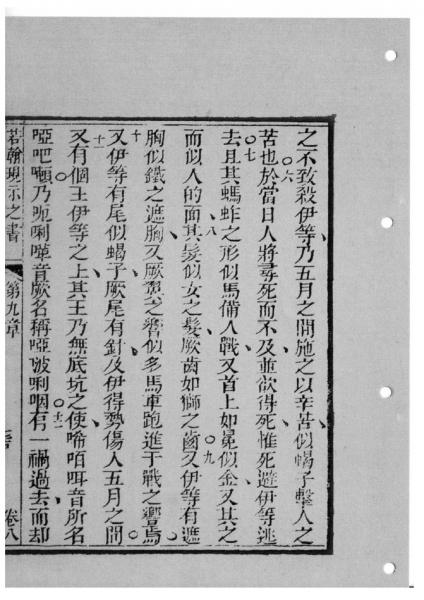 之不致殺伊等乃五月之間施之以辛苦似蝎子擊人之
苦也六於當日人將尋死而不及並欲得死惟死避伊等逃
去七且其螞蚱之形似馬備人戰又首上如冕似金又其之
而似人的面八其髮似女之髮厥齒如獅之齒九又伊等有遮
胸似鐵之遮胸又厥翼之響似多馬車跑進于戰之響焉
十又伊等有尾似蝎子厥尾有針及伊得勢傷人五月之間
十一又有個王伊等之上其王乃無底坑之使唏咟咡音所名
啞吧噸乃呃唎音厥名稱啞波唎十二有一禍過去而却
若翰現示之書 第九章 卷八